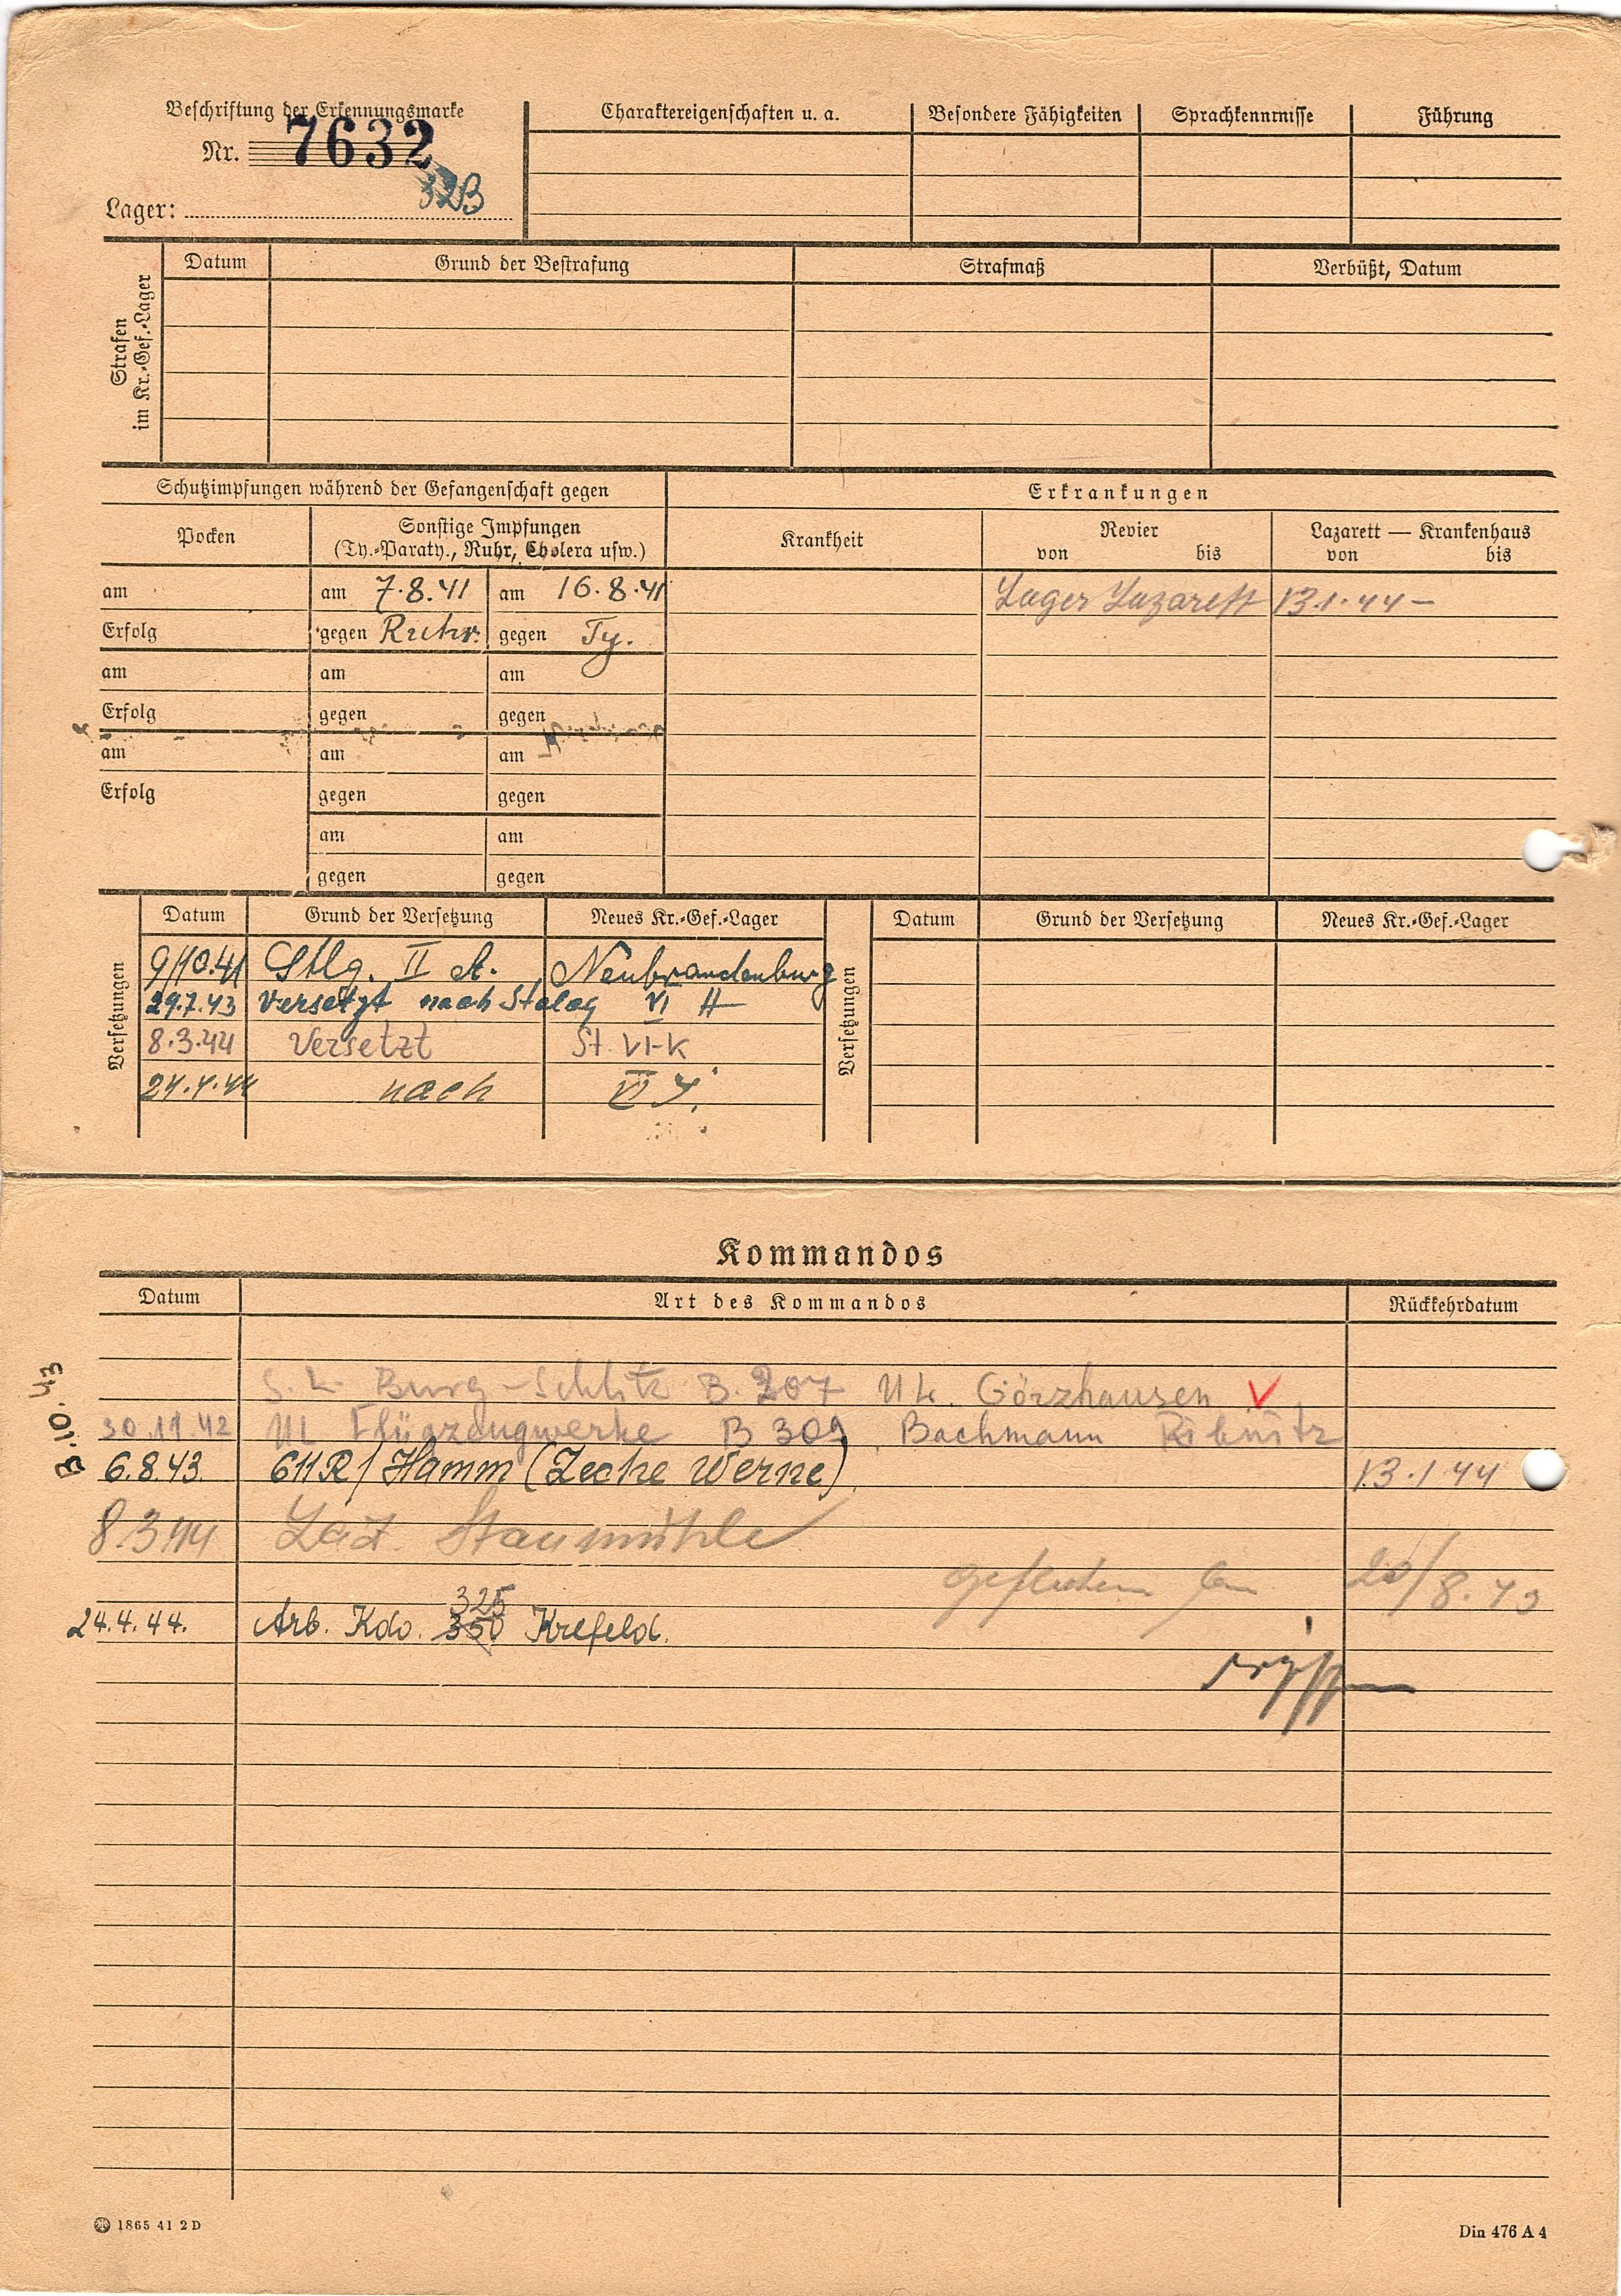 Beschriftung der Erkennungsmarke
Nr. 7632
32B
Lager:
Charaktereigenschaften u. a.
Besondere Fähigkeiten
Sprachkenntnisse
Führung
Strafen
im Kr.-Gef.-Lager
Datum
Grund der Bestrafung
Strafmaß
Verbüßt, Datum
Schutzimpfungen während der Gefangenschaft gegen
Erkrankungen
Pocken
Sonstige Impfungen
(Ty.-Paraty., Ruhr, Cholera usw.)
Krankheit
Revier
von bis
Lazarett — Krankenhaus
von bis
am am 7.8.41 am 16.8.41
Lager Lazarett 13.1.44 –
Erfolg gegen Ruhr. gegen Ty.
am am am
Erfolg gegen gegen
am am am
Erfolg gegen gegen
am am
gegen gegen
Versetzungen
Datum Grund der Versetzung Neues Kr.-Gef.-Lager
9/10.41 Stlg. II A. Neubrandenburg
29.7.43 Versetzt nach Stalag VI H
8.3.44 Versetzt St. VI-K
24.4.44 nach VI J.
Versetzungen
Datum Grund der Versetzung Neues Kr.-Gef.-Lager
Kommandos
Datum Art des Kommandos Rückkehrdatum
Burg-Schlitz B. 207 UL. Görzhausen V
30.11.42 UL Flugzeugwerke B 309, Bachmann Ribnitz
6.8.43. 611 R/ Hamm (Zeche Werne) 13.1.44
8.3.44 Laz. Staumühle
20/8.43
325
24.4.44. Arb. Kdo. 350 Krefeld.
1865 41 2 D
Din 476 A 4